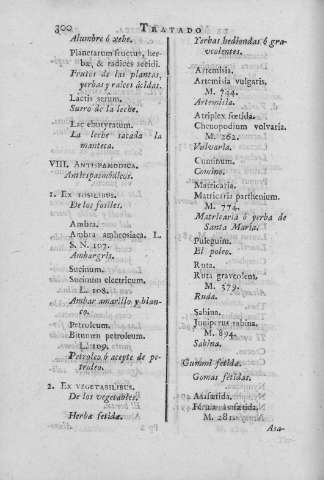 300
TRATADO
Alumbre ó xebe.
Planetarum fructus, her-
bæ, & radices acidi.
Frutos de las plantas,
yerbas y raices ácidas.
Lactis serum.
Suero de la leche.
Lac ebutyratum.
La leche sacada la
manteca.
VIII. ANTISPAMODICA.
Antiespasmódicos.
1. EX FOSILIBUS.
De los fosiles.
Ambra.
Ambra ambrosiaca. L.
S. N. 107.
Ambargris.
Sucinum.
Sucinum electricum.
L. 108.
Ambar amarillo y blan-
co.
Petroleum.
Bitumen petroleum.
L. 109.
Petroleo ó aceyte de pe-
troleo.
2. EX VEGETABILIBUS.
De los vegetables.
Herbæ fetidæ.
Yerbas hediondas ó gra-
veolentes.
Artemisia.
Artemisia vulgaris.
M. 744.
Artemisia.
Atriplex fœtida.
Chenopodium vulvaria.
M. 262.
Vulvaria.
Cuminum.
Comino.
Matricaria.
Matricaria parthenium.
M. 774.
Matricaria ó yerba de
Santa Maria.
Pulegium.
El poleo.
Ruta.
Ruta graveolens.
M. 579.
Ruda.
Sabina.
Juniperus sabina.
M. 894.
Sabina.
Gummi fetida.
Gomas fetidas.
Asafœtida.
Ferula assafœtida.
M. 281.
Asa-